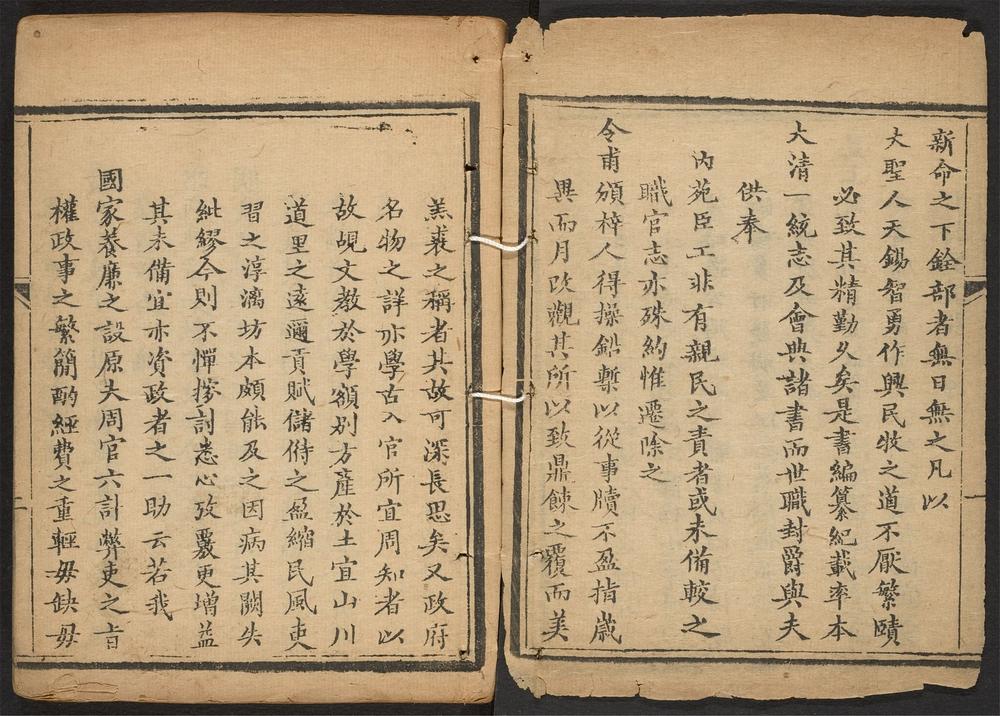 新命之下銓部者無日無之凡以
大聖人天錫智勇作興民牧之道不厭繁賾
必致其精勤久矣是書編纂紀載率本
大清一統志及會典諸書而世職封爵與夫
供奉
內苑臣工非有親民之責者或未備較之
職官志亦殊約惟遷除之
令甫頒梓人得操鉛槧以從事牘不盈指歲
異而月改觀其所以致鼎餗之覆而美
羔裘之稱者其故可深長思矣又政府
名物之詳亦學古入官所宜周知者以
故覘文教於學額別方產於土宜山川
道里之遠邇貢賦儲偫之盈縮民風吏
習之淳漓坊本頗能及之因病其闕失
紕繆今則不憚搜討悉心攷覈更增益
其未備宜亦資政者之一助云若我
國家養廉之設原夫周官六計弊吏之旨
權政事之繁簡酌經費之重輕毋缺毋
一
二